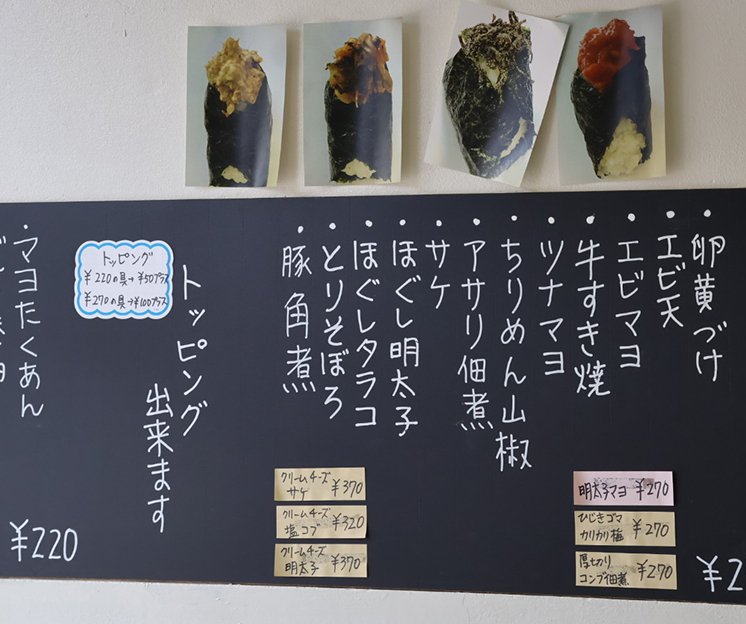 卵黄づけ
エビ天
エビマヨ
牛すき焼
ツナマヨ
ちりめん山椒
アサリ佃煮
サケ
ほぐし明太子
ほぐしタラコ
とりそぼろ
豚角煮
¥2
明太子マヨ ¥270
ひじきゴマ
カリカリ梅 ¥270
厚切り
コンブ佃煮 ¥270
クリームチーズ
サケ ¥370
クリームチーズ
塩コブ ¥320
クリームチーズ
明太子 ¥370
トッピング
出来ます
トッピング
¥220の具→¥50プラス
¥270の具→¥100プラス
マヨたくあん
¥220